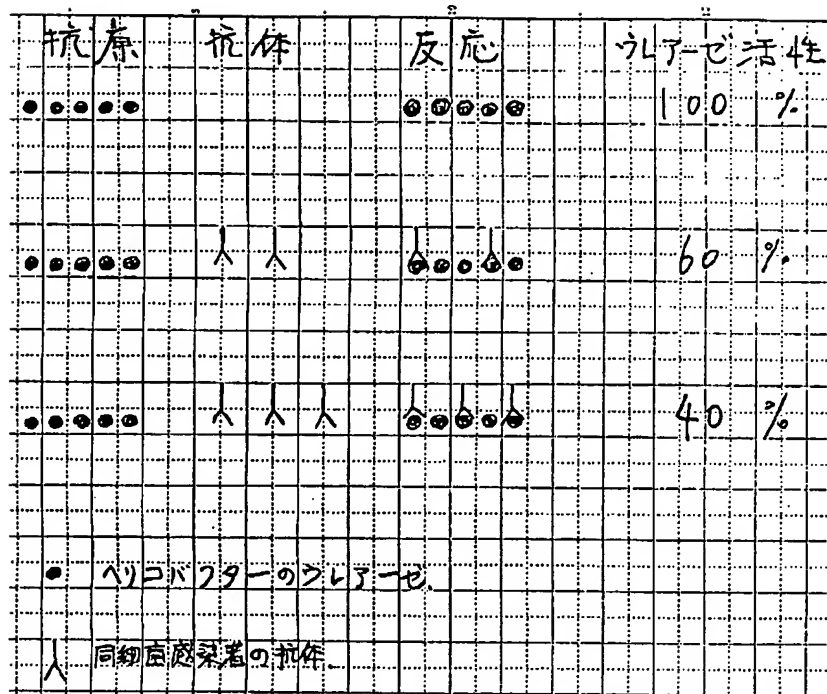 抗原 抗体 反応 ウレアーゼ活性
100 %
60 %
40 %
ヘリコバクターのウレアーゼ.
同細菌感染者の抗体